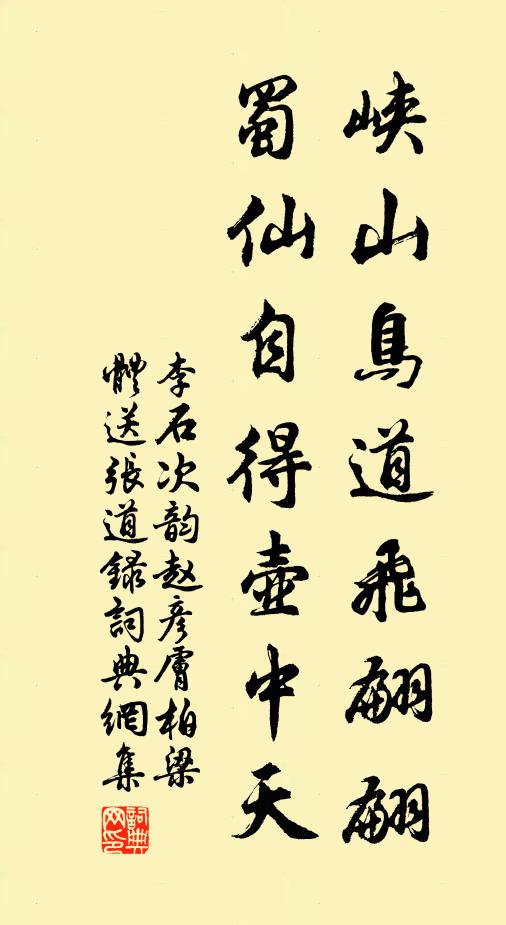 峽山鳥道飛翩翩
蜀仙自得壺中天
李石次韵赵彦膚柏梁
體送張道錄詞典網集
詞典
网印